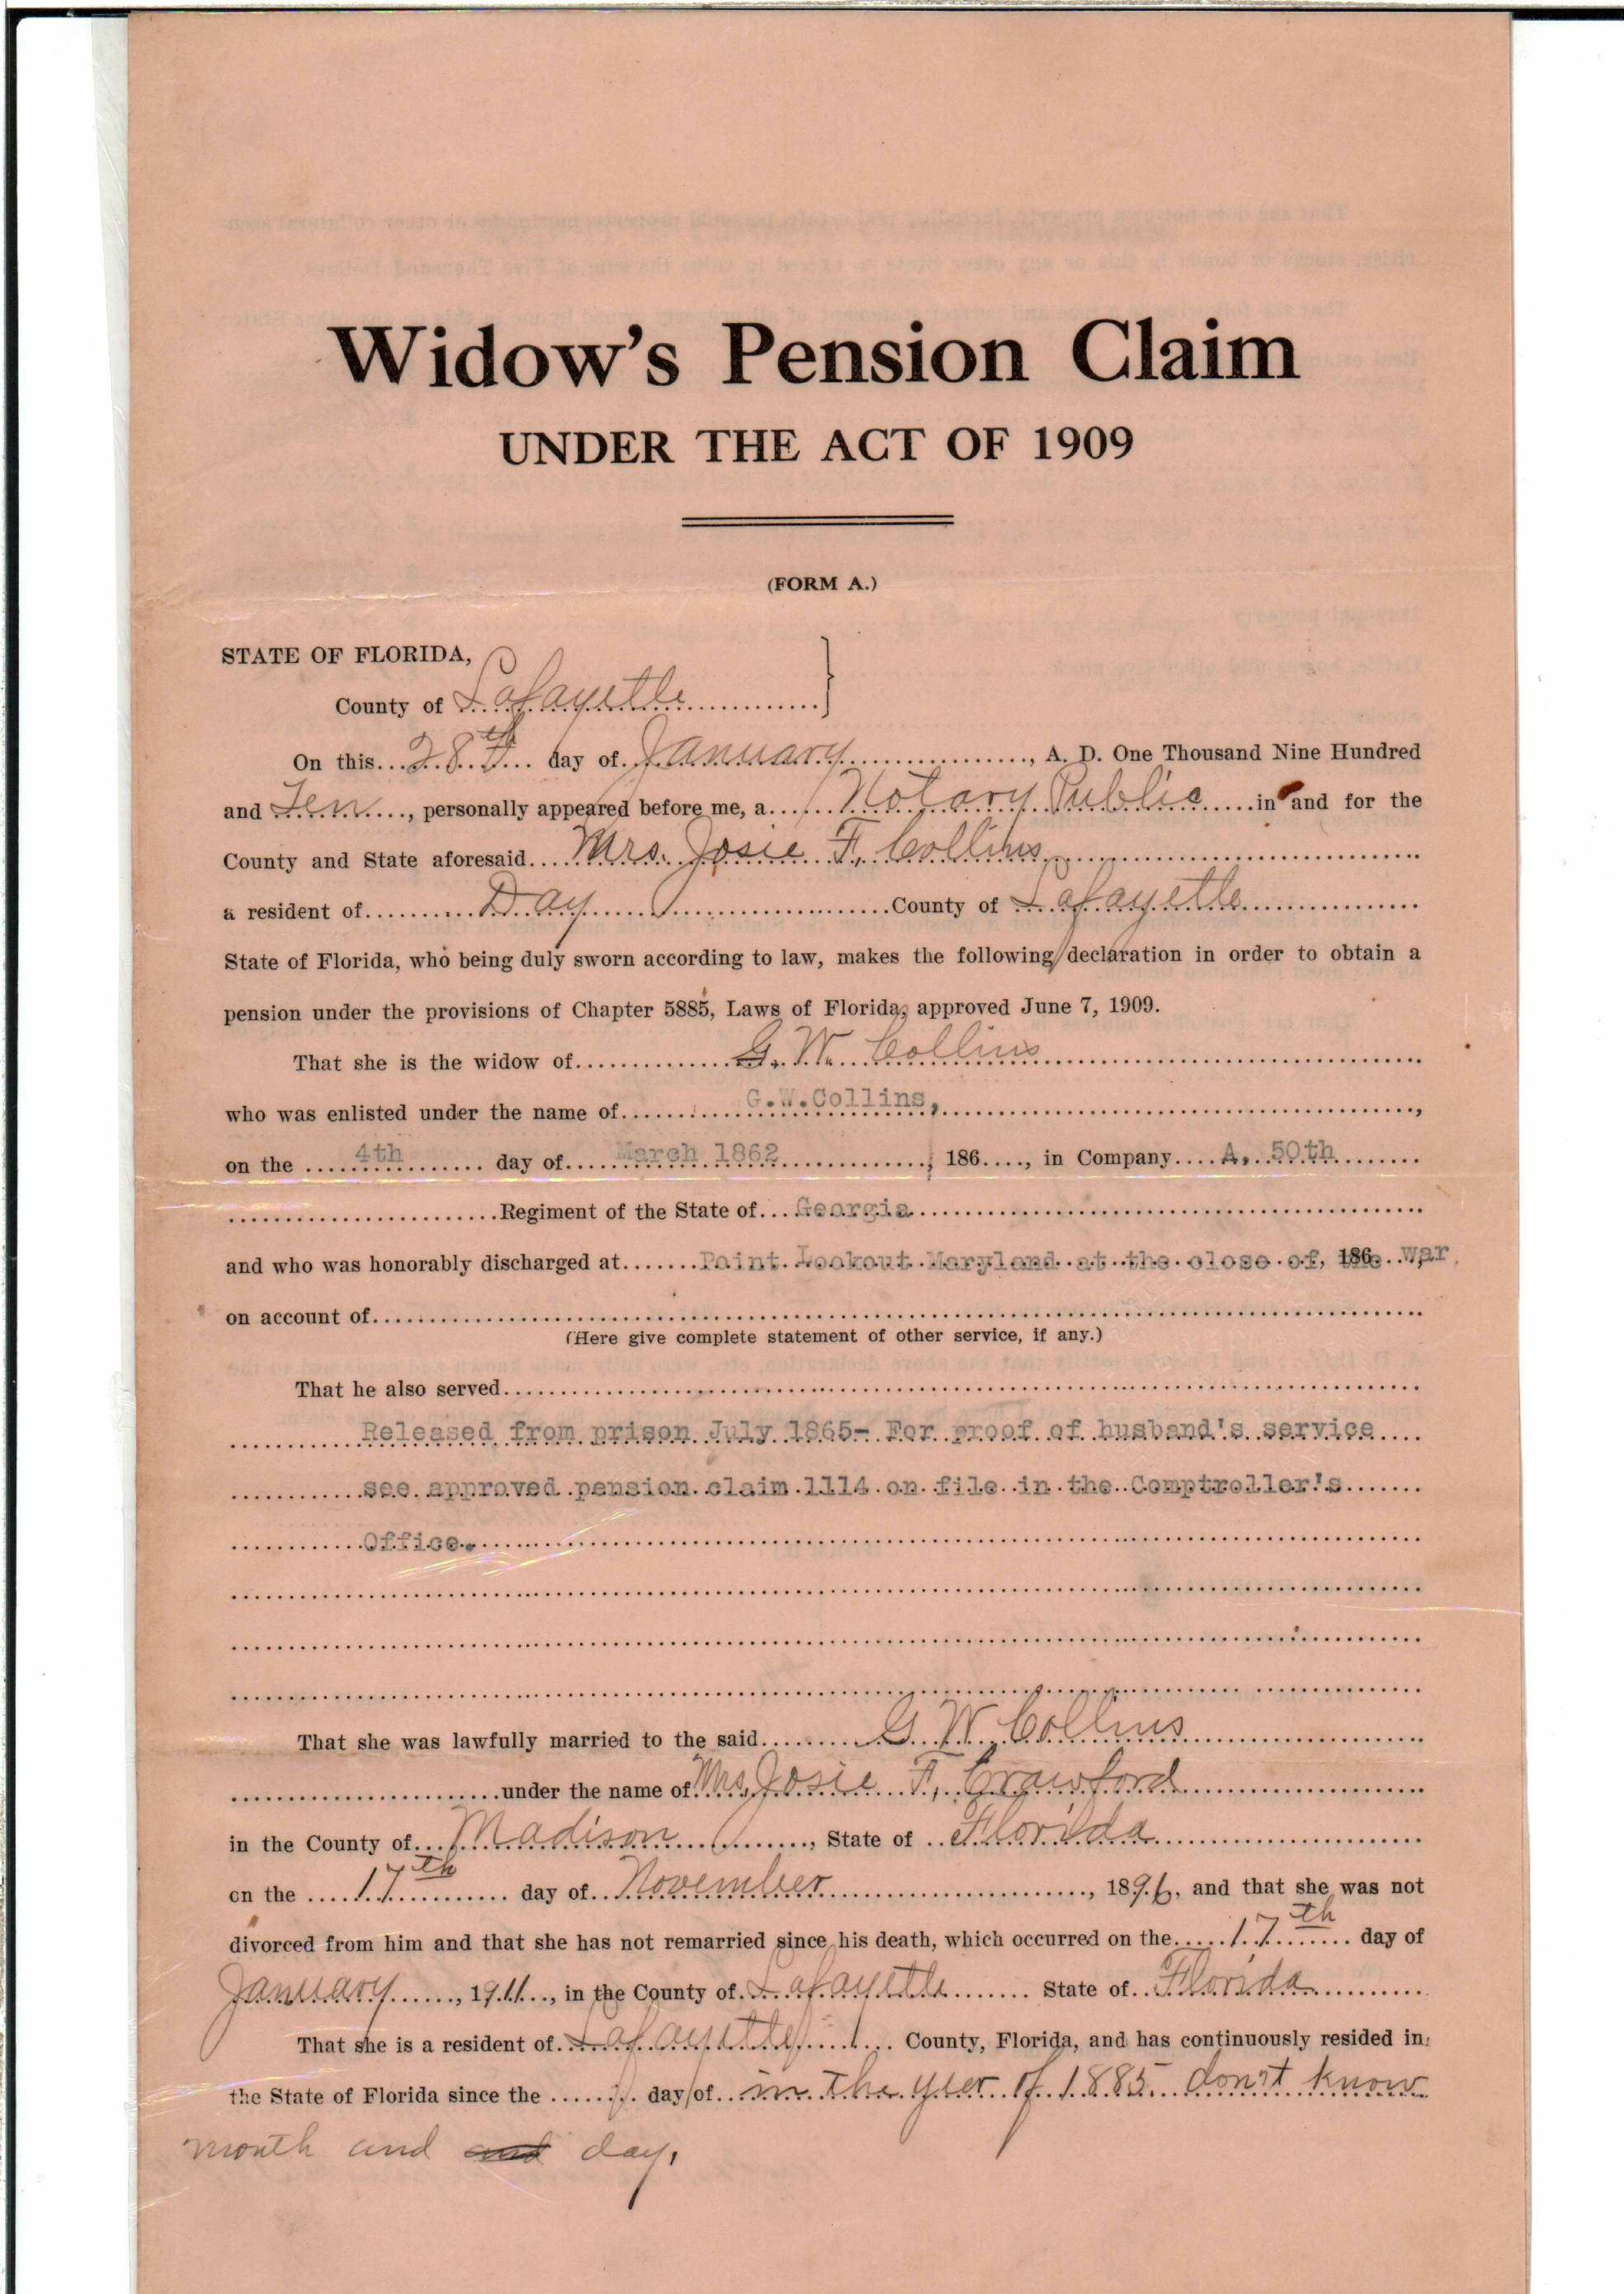 Widow's Pension Claim
UNDER THE ACT OF 1909
(FORM A.)
STATE OF FLORIDA,
County of Lafayette
On this 28th day of January, A. D. One Thousand Nine Hundred
and Ten, personally appeared before me, a Notary Public in and for the
County and State aforesaid Mrs. Josie F. Collins
a resident of Day County of Lafayette
State of Florida, who being duly sworn according to law, makes the following declaration in order to obtain a
pension under the provisions of Chapter 5885, Laws of Florida, approved June 7, 1909.
That she is the widow of G. W. Collins
who was enlisted under the name of G.W.Collins,
on the 4th day of March 1862, 186, in Company A, 50th
Regiment of the State of Georgia
and who was honorably discharged at Point Lookout Maryland at the close of, 186 the war,
on account of
(Here give complete statement of other service, if any.)
That he also served
Released from prison July 1865- For proof of husband's service
see approved pension claim 1114 on file in the Comptroller's
Office.
That she was lawfully married to the said G. W. Collins
under the name of Mrs. Josie F. Crawford
in the County of Madison, State of Florida
on the 17th day of November, 1896, and that she was not
divorced from him and that she has not remarried since his death, which occurred on the 17th day of
January, 1911, in the County of Lafayette State of Florida
That she is a resident of Lafayette County, Florida, and has continuously resided in
the State of Florida since the day of in the yeer of 1885 don't know
month and and day.